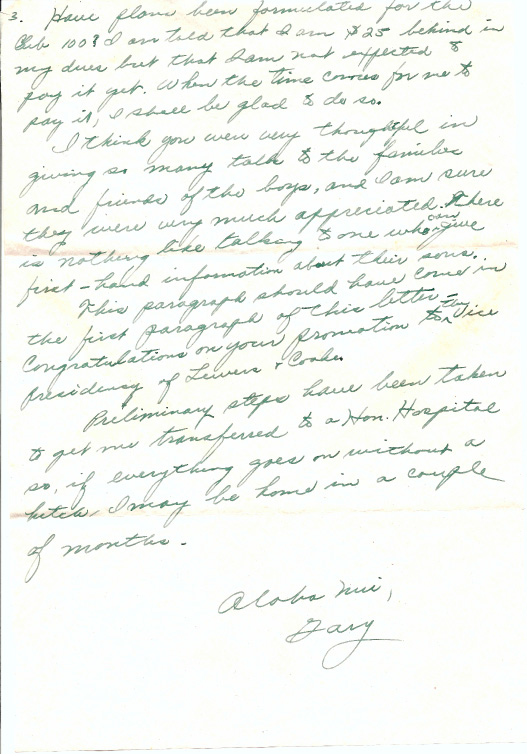 3. Have plans been formulated for the
Club 100? I am told that I am $25 behind in
my dues but that I am not expected to
pay it yet. When the time comes for me to
pay it, I shall be glad to do so.
I think you were very thoughtful in
giving so many talks to the families
and friends of the boys, and I am sure
they were very much appreciated. There
is nothing like talking to one who can give
first-hand information about their sons.
This paragraph should have come in
the first paragraph of this letter -
Congratulations on your promotion to the Vice
Presidency of Lewers & Cooke.
Preliminary steps have been taken
to get me transferred to a Hon. Hospital
so, if everything goes on without a
hitch, I may be home in a couple
of months.
Aloha nui,
Gary